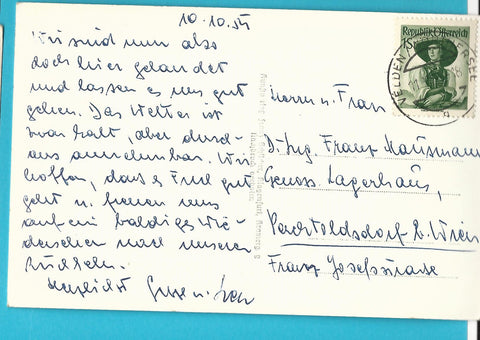 10.10.54
Wir sind nun also
doch hier gelandet
und lassen es uns gut
gehen. Das Wetter ist
zwar kalt, aber durch-
aus annehmbar. Wir
hoffen, dass es Euch gut
geht u. freuen uns
auf ein baldiges Wie-
dersehen nach unserer
Rückkehr.
Herzlichst
Republik Österreich
VELDEN
Herrn u. Frau
Dr. Ing. Franz Hausmann
Genoss. Lagerhaus,
Perchtoldsdorf b. Wien
Franz Josefsstrasse